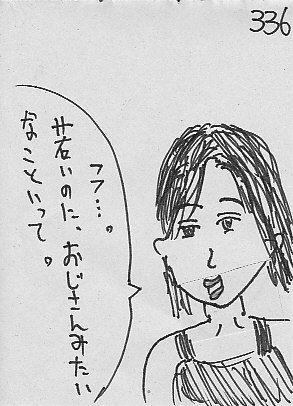 336
フ…。
若いのに、おじさんみたい
なこといって。